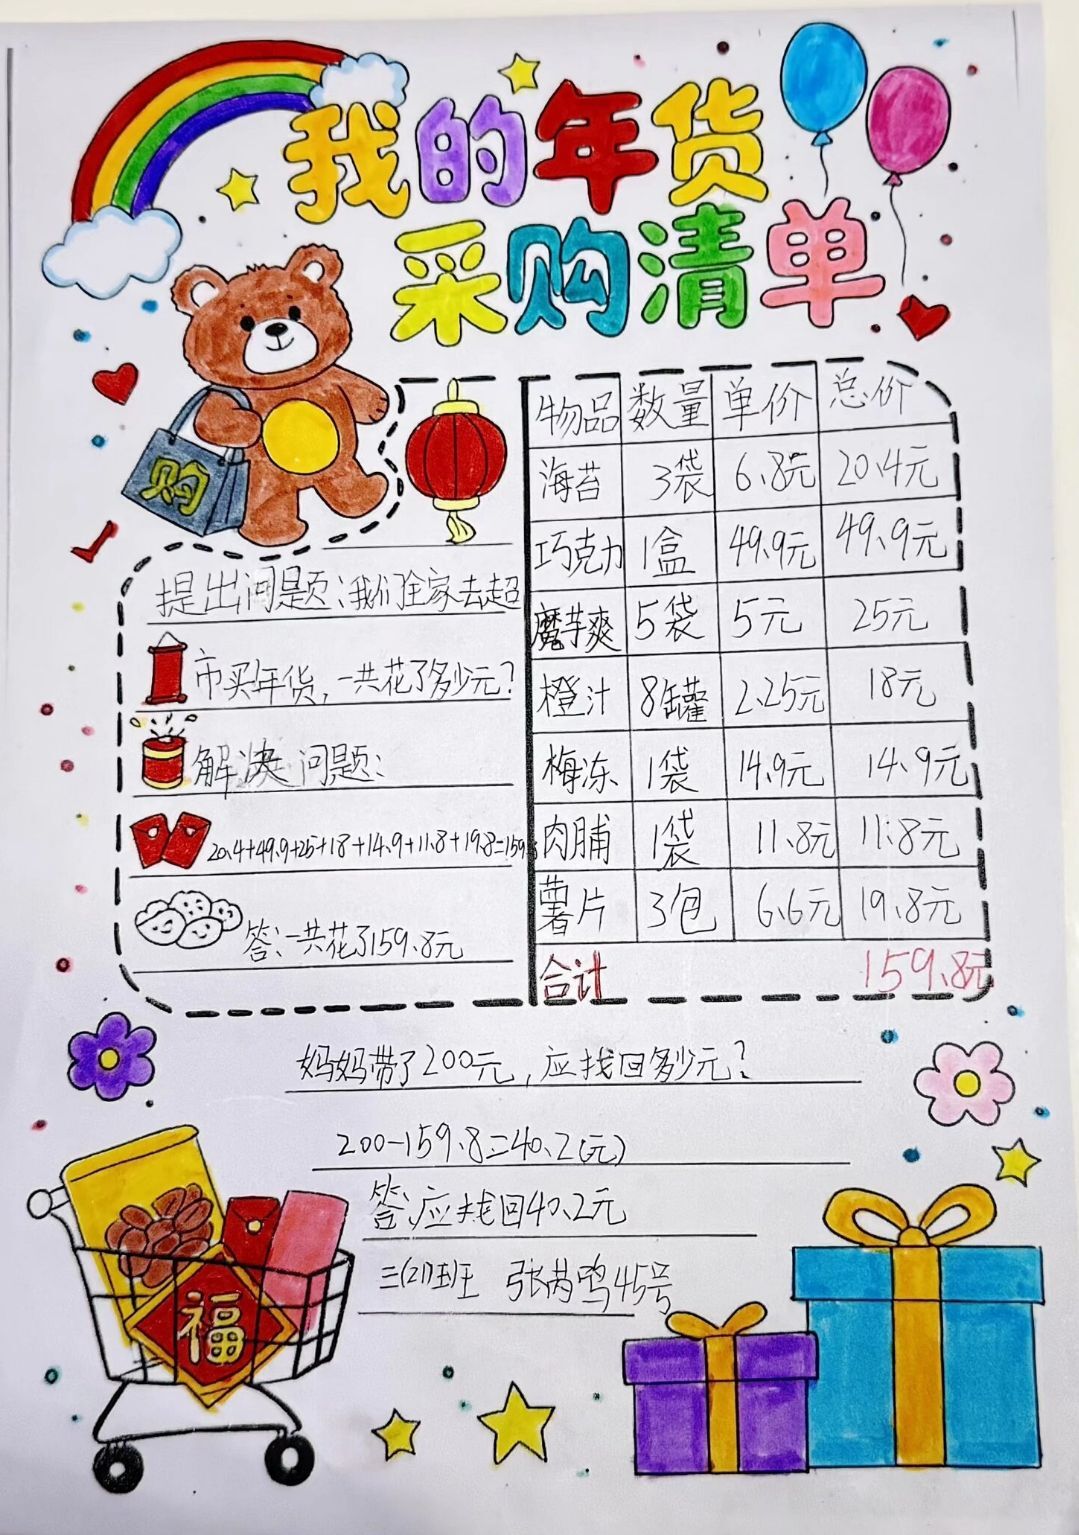 我的年货
采购清单
购
物品 数量 单价 总价
海苔 3袋 6.8元 20.4元
巧克力 1盒 49.9元 49.9元
魔芋爽 5袋 5元 25元
橙汁 8罐 2.25元 18元
梅冻 1袋 14.9元 14.9元
肉脯 1袋 11.8元 11.8元
薯片 3包 6.6元 19.8元
合计 159.8元
提出问题:我们全家去超
市买年货,一共花了多少元?
解决问题:
20.4+49.9+25+18+14.9+11.8+19.8=159
答:一共花了159.8元
妈妈带了200元,应找回多少元?
200-159.8=40.2(元)
答:应找回40.2元
三(21)班 张芮鸣45号
福